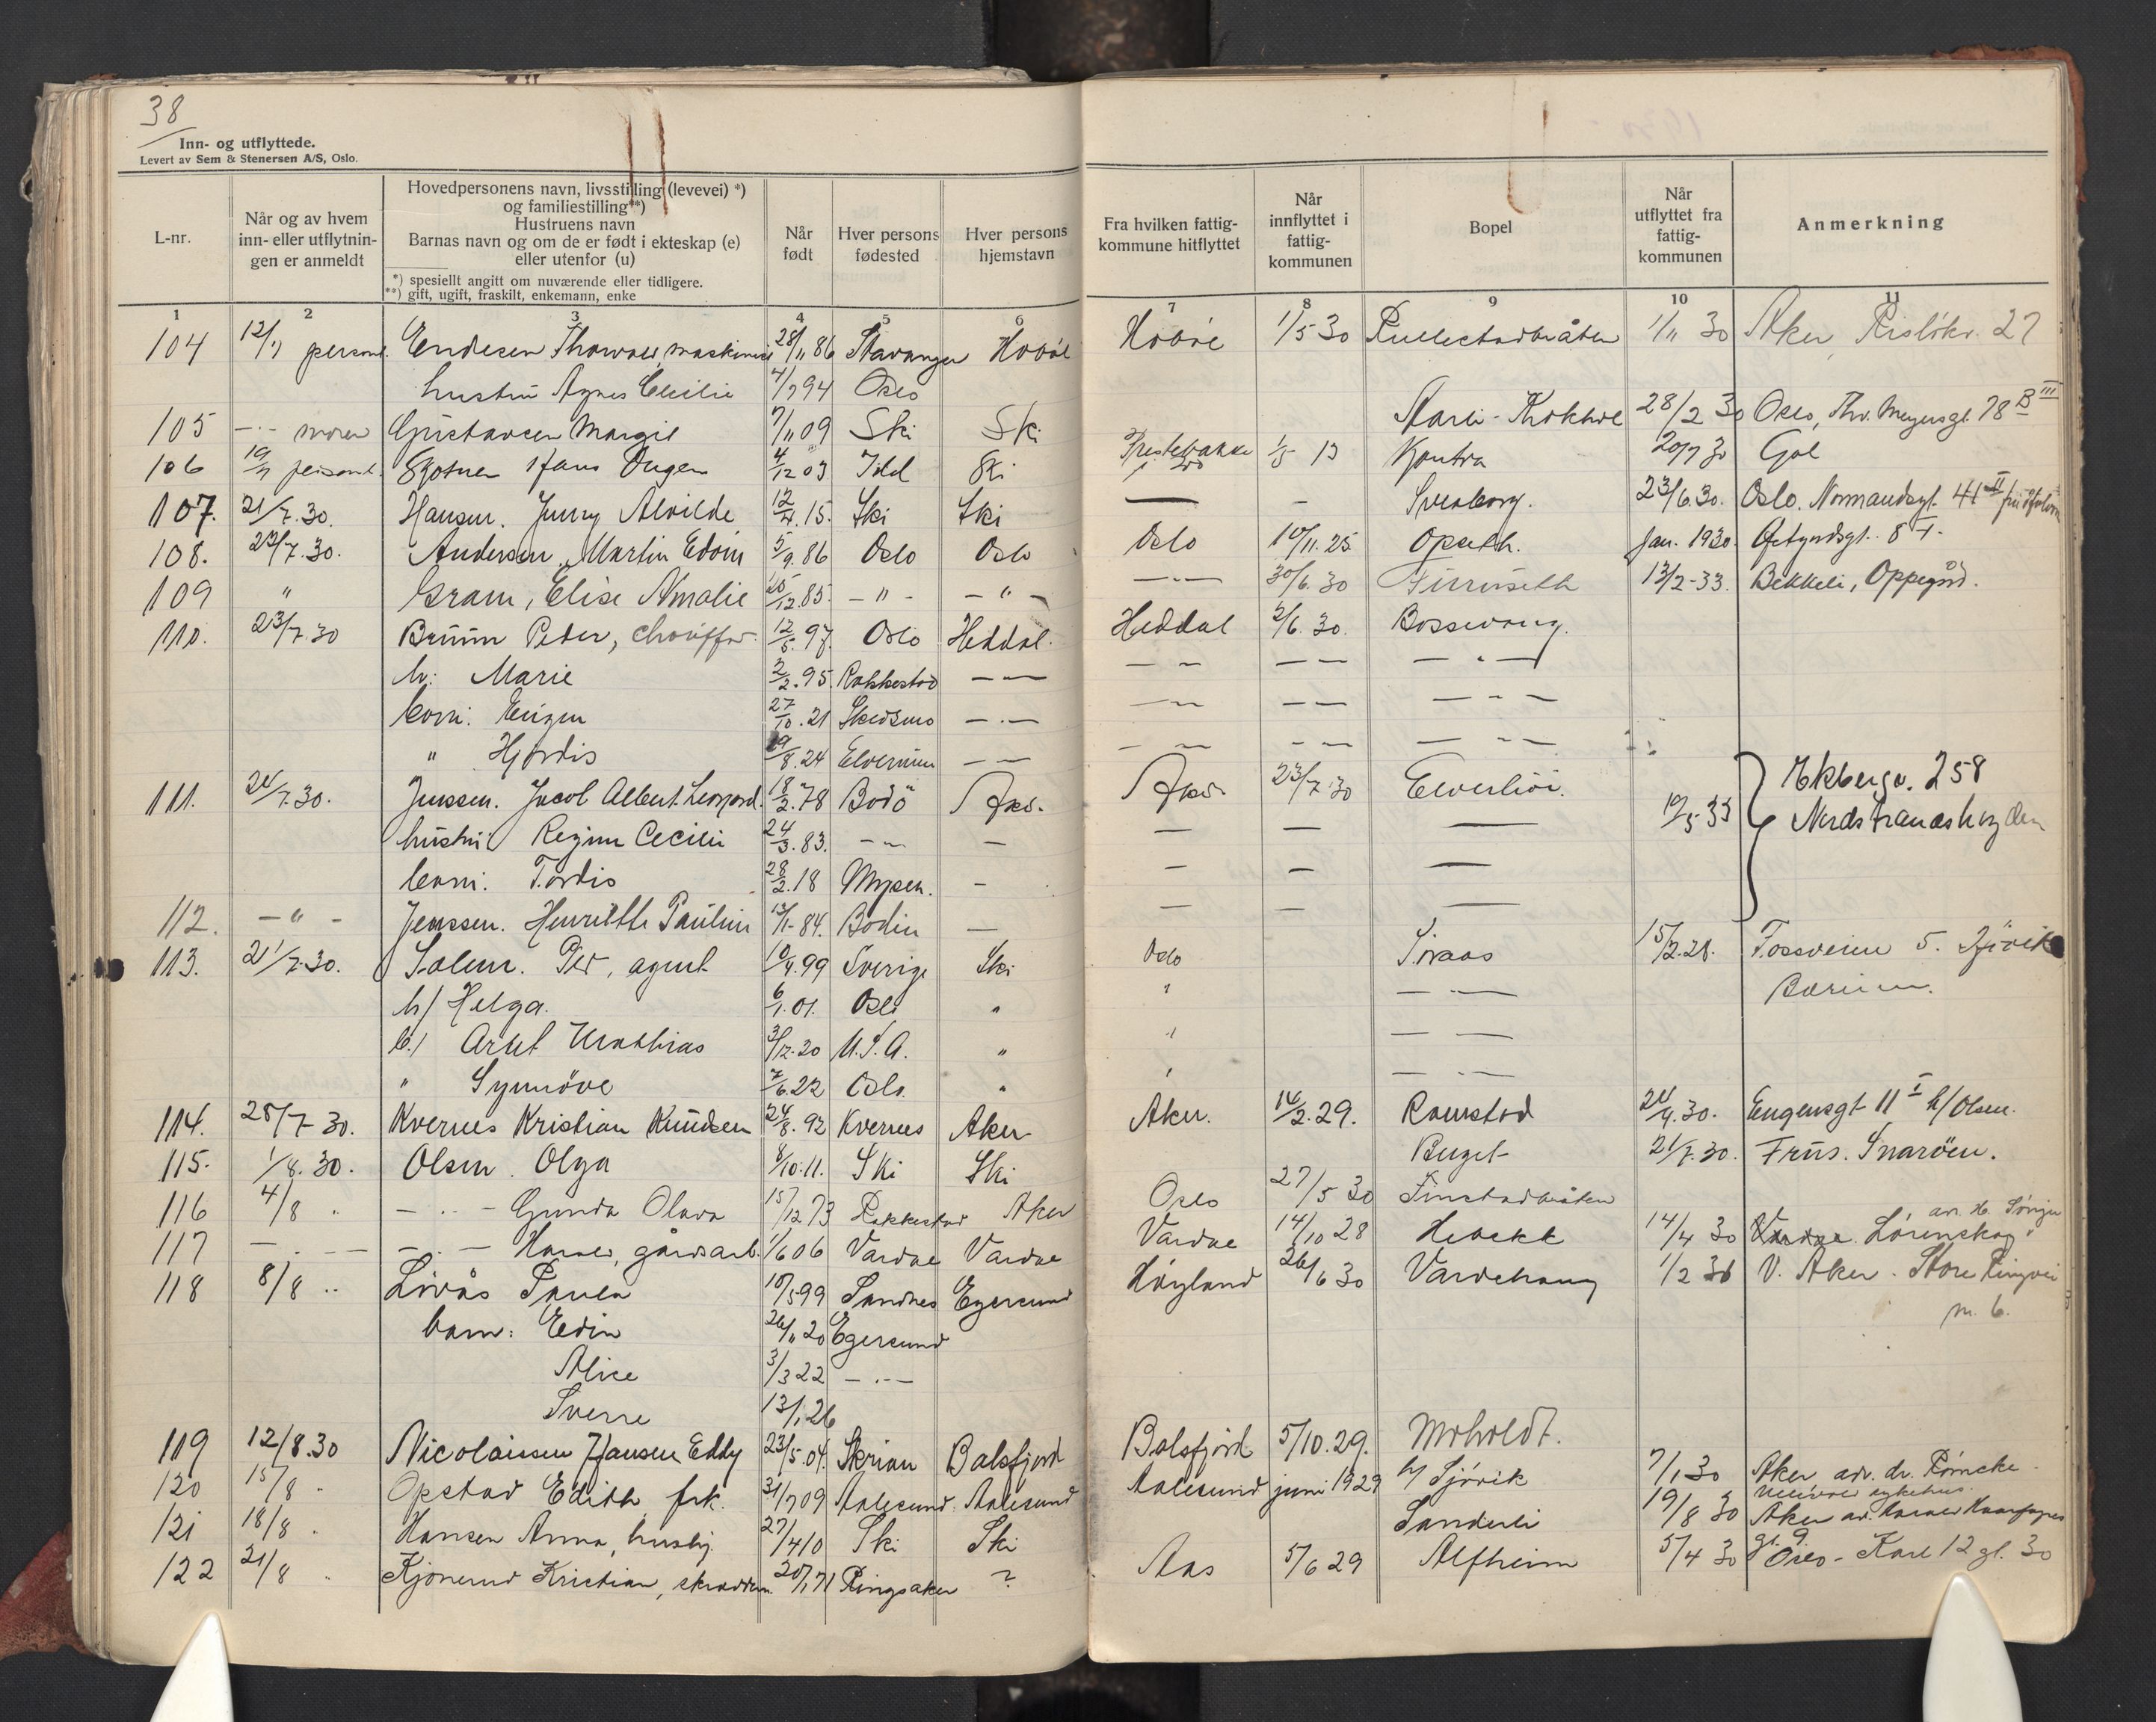 38
Inn- og utflyttede.
Levert av Sem & Stenersen A/S, Oslo.
L-nr.
Når og av hvem inn- eller utflytnin- gen er anmeldt
Hovedpersonens navn, livsstilling (levevei) *)
og familiestilling **)
Hustruens navn
Barnas navn og om de er født i ekteskap (e)
eller utenfor (u)
*) spesiellt angitt om nuværende eller tidligere.
**) gift, ugift, fraskilt, enkemann, enke
Når født
Hver persons fødested
Hver persons hjemstavn
Fra hvilken fattig- kommune hitflyttet
Når innflyttet i fattig- kommunen
Bopel
Når utflyttet fra fattig- kommunen
Anmerkning
1 2 3 4 5 6 7 8 9 10 11
104 12/7 personl. Endresen Thorvald, maskinist 28/11 86 Stavanger Hobøl Hobøl 1/5 30 1/11 30 Aker, Risløkv. 27
hustru Agnes Cecilie 4/7 94 Oslo
105 -"- moren Gustavsen Margit 7/11 09 Ski Ski 28/2 30 Oslo, Thv. Meyersgt. 78 B III
106 19/7 personl. Hans 4/12 03 Idd Ski Prestebakke 1/5 13 Kontra 20/7 30 Gol
107. 21/7.30. Hansen. Jenny Alvilde 12/4.15. Ski Ski — - Svenborg. 23/6.30. Oslo. Normandsgt. 41 II
108. 23/7.30. Andersen, Martin Edvin 5/9.86 Oslo Oslo Oslo 10/11.25 Opseth. Jan. 1930. 8 I.
109 " Gram, Elise Amalie 25/12.85. -"- -"- -"- 30/6.30 13/2-33. Bekkeli, Oppegård.
110. 23/7.30 Bruun Peter, chauffør 12/5.97. Oslo Heddal. Heddal 2/6.30. Bossevang.
h: Marie 2/2.95. Rakkestad -"- -"- -"- -"-
barn: Eugen 27/10.21 Skedsmo -"- -"- -"- -"-
" Hjørdis 19/8.24 Elverum -"- -"- -"- -"-
111. 24/7.30. Jenssen. Jacob Albert Leonard. 18/2.78 Bodö Aker. Aker. 23/7.30 Elverhöi. 19/5-33 Ekbergv. 258
hustru Regine Cecilie 24/3.83. -"- — — — — Nordstrandshøgden
barn: Tordis 28/2.18 Mysen. - — — —
112. -"- Jenssen. Henriette Pauline 13/1-84. Bodin — — — —
113. 21/7.30. Solem. Per, agent 10/4.99 Sverige Ski Oslo Siraas 15/2.28. Fossveien 5.
h/ Helga. 6/1.01. Oslo " " -"- Bærum.
b/ Mathias 31/12.20 U.S.A. " " -"-
" Synnöve 7/6.22 Oslo. " " -"-
114. 28/7-30. Kvernes Kristian Knudsen 24/8.92 Kvernes Aker Aker. 14/2.29. Ramstad 24/4.30. Eugensgt 11 I h/Olsen.
115. 1/8.30. Olsen. Olga 8/10.11. Ski Ski Berget 21/7.30. Snaröen.
116 4/8 " -"- Gunda Olava 15/12 73 Rakkestad Aker Oslo 27/5 30 Finstadbråten
117 -"- -"- Harald, gårdsarb. 1/6 06 Vardøe Vardøe Vardøe 14/10 28 Hebekk 14/4 30 Vardøe. Lørenskog
118 8/8 " Lövås Paula 10/5 99 Sandnes Egersund Høyland 26/6 30 Vardehaug 1/2 31 V. Aker. Store Ringvei
barn: Edin 26/11 20 Egersund
Alice 3/3 22 -"-
Sverre 13/1 26
119 12/8.30 Nicolaissen Hansen Eddy 23/5.04. Balsfjord Balsfjord 5/10.29. Moholdt.
120 15/8 " Opstad Edith, frk. 31/7 09 Aalesund Aalesund Aalesund juni 1929 h/ Sjövik 7/1 30 Aker adr. dr.
121 18/8 " Hansen Anna, hushj. 27/4 10 Ski Ski Sanderli 19/8 30 Aker
122 21/8 " Kjönerud Kristian, skredder. 20/1 71 Ringsaker ? Aas 5/6 29 Alfheim 5/4 30 Oslo - Karl 12 gt. 30